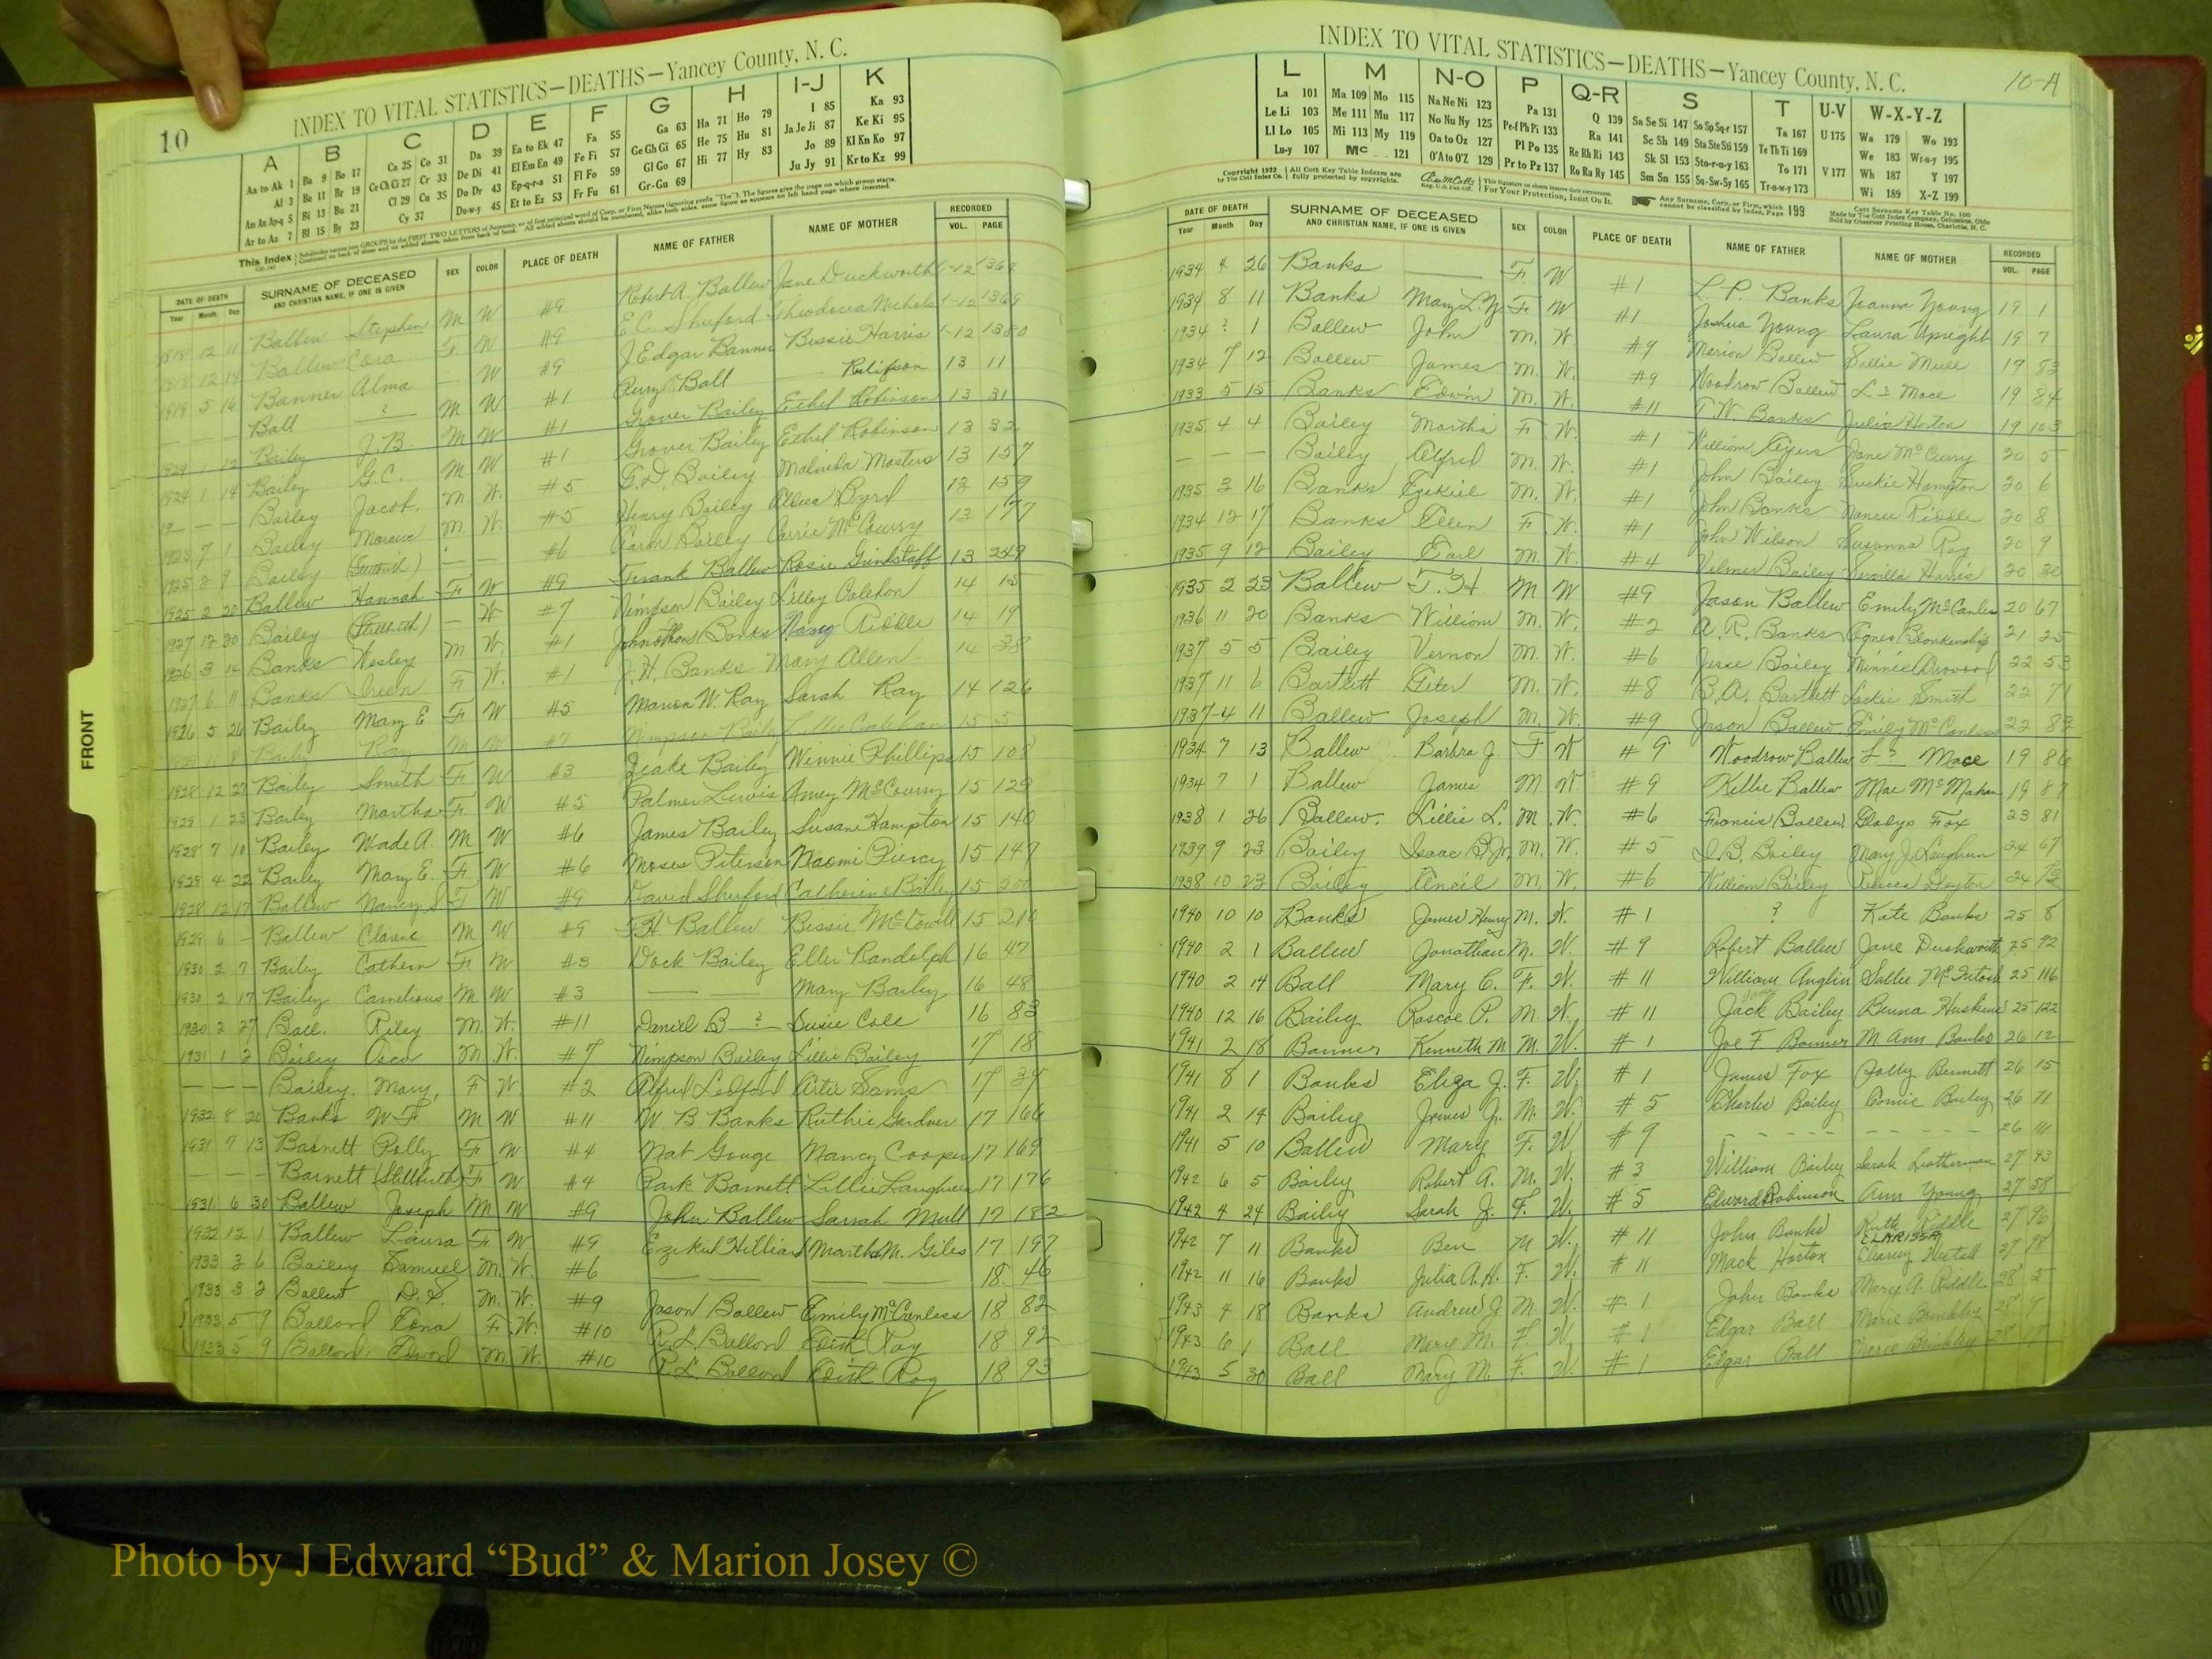 10
INDEX TO VITAL STATISTICS—DEATHS—Yancey County, N. C.
A B C D E F G H I-J K
Aa to Ak 1 Ba 9 Bo 17 Ca 25 Co 31 Da 39 Ea to Ek 47 Fa 55 Ga 63 Ha 71 Ho 79 I 85 Ka 93
Al 3 Be 11 Br 19 Ce Ch Ci 27 Cr 33 De Di 41 El Em En 49 Fe Fi 57 Ge Gh Gi 65 He 75 Hu 81 Ja Je Ji 87 Ke Ki 95
Am An Ap-q 5 Bi 13 Bu 21 Cl 29 Cu 35 Do Dr 43 Ep-q-r-s 51 Fl Fo 59 Gl Go 67 Hi 77 Hy 83 Jo 89 Kl Kn Ko 97
Ar to Az 7 Bl 15 By 23 Cy 37 Du-w-y 45 Et to Ez 53 Fr Fu 61 Gr-Gu 69 Ju Jy 91 Kr to Kz 99
This Index
DATE OF DEATH SURNAME OF DECEASED SEX COLOR PLACE OF DEATH NAME OF FATHER NAME OF MOTHER RECORDED
Year Month Day AND CHRISTIAN NAME, IF ONE IS GIVEN VOL. PAGE
1918 12 11 Ballew Stephen M W #9 Robert A. Ballew Jane Duckworth 1-12
1918 12 14 Ballew Cora F W #9 E.C. Shuford Theodocia Nichols 1-12 1369
1919 5 16 Banner Alma W #9 J. Edgar Banner Bessie Harris 1-12 1380
— — — Ball ? M W #1 Ball 13 11
1924 1 12 Bailey J.B. M W #1 Grover Bailey Ethel Robinson 13 31
1924 1 14 Bailey G.C. M W #1 Grover Bailey Ethel Robinson 13 32
19 — — Bailey Jacob. M W. #5 G.D. Bailey Malinda Masters 13 157
1923 7 1 Bailey M. W. #5 Henry Bailey Byrd 13 159
1925 2 9 Bailey #6 Bailey Carrie McCourry 13 177
1925 2 20 Ballew Hannah F W #9 Frank Ballew Rosie Grindstaff 13 249
1927 12 30 Bailey (Stillbirth) — W #7 Nimpson Bailey Lilley 14 15
1926 3 14 Banks Wesley M W. #1 Johnathan Banks Nancy Riddle 14 19
1927 6 11 Banks F W. #1 J.H. Banks Mary Allen 14 38
1926 5 26 Bailey Mary E F W #5 W. Ray Sarah Ray 14 126
Bailey Ray M W #7 Nimpson Bailey 15 5
1928 12 27 Bailey Smith F W #3 Zeake Bailey Winnie Phillips 15 108
1929 1 23 Bailey Martha F W #5 Palmer Lewis Amey McCourry 15 129
1928 7 10 Bailey Wade A. M W #6 James Bailey Susan Hampton 15 140
1929 4 22 Bailey Mary E. F W #6 Moses Peterson Naomi Piercy 15 147
1928 12 17 Ballew Nancy S F W #9 David Shuford Catherine Bailey 15
1929 6 — Ballew Clarene M W #9 Ballew Bessie McDowell 15
1930 2 7 Bailey Cathern F W #3 Dock Bailey Eller Randolph 16 47
1930 2 17 Bailey Carnelious M W #3 — — Mary Bailey 16 48
1930 2 27 Ball. Riley M. W. #11 Daniel B — ? Susie Cole 16 83
1931 1 2 Bailey Oscar M. W. #7 Nimpson Bailey Lillie Bailey 17 18
— — — Bailey, Mary, F W. #2 Alfred Ledford Artie Sams 17 34
1932 8 20 Banks W F. M W #11 W B Banks Ruthie Gardner 17 166
1931 7 13 Barnett Polly F W #4 Nat Gouge Nancy Cooper 17 169
— — — Barnett (Stillbirth) F W #4 Park Barnett Lillie Laughrun 17 176
1931 6 30 Ballew Joseph M W #9 John Ballew Sarrah Mull 17 182
1932 12 1 Ballew Laura F W #9 Ezekiel Hilliard Martha M. Giles 17 197
1933 3 6 Bailey Samuel M. W. #6 — — — — 18 46
1933 3 2 Ballew D. S. M. W. #9 Jason Ballew Emily McCanless 18 82
1933 5 9 Ballard Edna F. W. #10 R. L. Ballard Edith Ray 18 92
1933 5 9 Ballard. Edward M. W. #10 R. L. Ballard Edith Ray 18 93
FRONT
INDEX TO VITAL STATISTICS—DEATHS—Yancey County, N. C.
10-A
L M N-O P Q-R S T U-V W-X-Y-Z
La 101 Ma 109 Mo 115 Na Ne Ni 123 Pa 131 Q 139 Sa Se Si 147 So Sp Sq-r 157 Ta 167 U 175 Wa 179 Wo 193
Le Li 103 Me 111 Mu 117 No Nu Ny 125 Pe-f Ph Pi 133 Ra 141 Sc Sh 149 Sta Ste Sti 159 Te Th Ti 169 We 183 Wr-u-y 195
Ll Lo 105 Mi 113 My 119 Oa to Oz 127 Pl Po 135 Re Rh Ri 143 Sk Sl 153 Sto-r-u-y 163 To 171 V 177 Wh 187 Y 197
Lu-y 107 Mc 121 O'A to O'Z 129 Pr to Pz 137 Ro Ra Ry 145 Sm Sn 155 Su-Sw-Sy 165 Tr-u-w-y 173 Wi 189 X-Z 199
DATE OF DEATH SURNAME OF DECEASED SEX COLOR PLACE OF DEATH NAME OF FATHER NAME OF MOTHER RECORDED
Year Month Day AND CHRISTIAN NAME, IF ONE IS GIVEN VOL. PAGE
1934 4 26 Banks — F W #1 L. P. Banks Joanna Young 19 1
1934 8 11 Banks Mary L. Y. F W #1 Joshua Young Laura Upright 19 7
1934 ? 1 Ballew John M. W. #9 Marion Ballew Sallie Mull 19 83
1934 7 12 Ballew James M. W. #9 Woodrow Ballew L ? Mace 19 84
1933 5 15 Banks Edwin M. W. #11 T. W. Banks Julia Horton 19 103
1935 4 4 Bailey Martha F W. #1 William Ayers Jane McCurry 20 5
— — — Bailey Alfred M. W. #1 John Bailey Hampton 20 6
1935 3 16 Banks Ezekiel M. W. #1 John Banks Riddle 20 8
1934 12 17 Banks Ellen F W. #1 John Wilson Susanna Ray 20 9
1935 9 12 Bailey Earl M. W. #4 Bailey Harris 20 30
1935 2 23 Ballew T. H. M W #9 Jason Ballew Emily McCanless 20 67
1936 11 20 Banks William M. W. #2 A. R. Banks Agnes Blankenship 21 25
1937 5 5 Bailey Vernon M. W. #6 Jesse Bailey Minnie Arrowood 22 53
1937 11 6 Bartlett Peter M. W. #8 B. A. Bartlett Smith 22 71
1937-4 11 Ballew Joseph M. W. #9 Jason Ballew Emily McCanless 22 82
1934 7 13 Ballew Barbra J. F W #9 Woodrow Ballew L ? Mace 19 86
1934 7 1 Ballew James M W #9 Kellie Ballew Mae McMahan 19 87
1938 1 26 Ballew. Lillie L. M. W. #6 Francis Ballew. Gladys Fox 23 81
1939 9 23 Bailey Isaac B. Jr. M. W. #5 I. B. Bailey Mary J. Laughrun 24 67
1938 10 23 Bailey Ancil M. W. #6 William Bailey Deyton 24 73
1940 10 10 Banks James Henry M. W. #1 ? Kate Banks 25 8
1940 2 1 Ballew Jonathan M. W. #9 Robert Ballew Jane Duckworth 25 92
1940 2 14 Ball Mary C. F. W. #11 William Anglin Sallie McIntosh 25 116
1940 12 16 Bailey Roscoe P. M W. #11 Jack Bailey Huskins 25 122
1941 2 18 Banner Kenneth M M. W. #1 Joe F Banner M Ann Banks 26 12
1941 8 1 Banks Eliza J. F. W. #1 James Fox Polly Bennett 26 15
1941 2 14 Bailey James J. M. W. #5 Charles Bailey Connie Bailey 26 71
1941 5 10 Ballew Mary F. W #9 - - - - - - - 26 111
1942 6 5 Bailey Robert A. M. W. #3 William Bailey Sarah Leatherman 27 43
1942 4 24 Bailey Sarah J. F. W. #5 Edward Robinson Ann Young 27 58
1942 7 11 Banks Ben M W. #11 John Banks Ruth Riddle 27 96
CLARISSA
1942 11 16 Banks Julia A. H. F. W. #11 Mack Horton 27 98
1943 4 18 Banks Andrew J. M. W. #1 John Banks Mary A. Riddle 28 5
1943 6 1 Ball Mary M. F. W. #1 Elgar Ball Marie Brinkley 28 9
1943 5 30 Ball Mary M. F. W. #1 Elgar Ball Marie Brinkley 28
Photo by J Edward “Bud” & Marion Josey ©